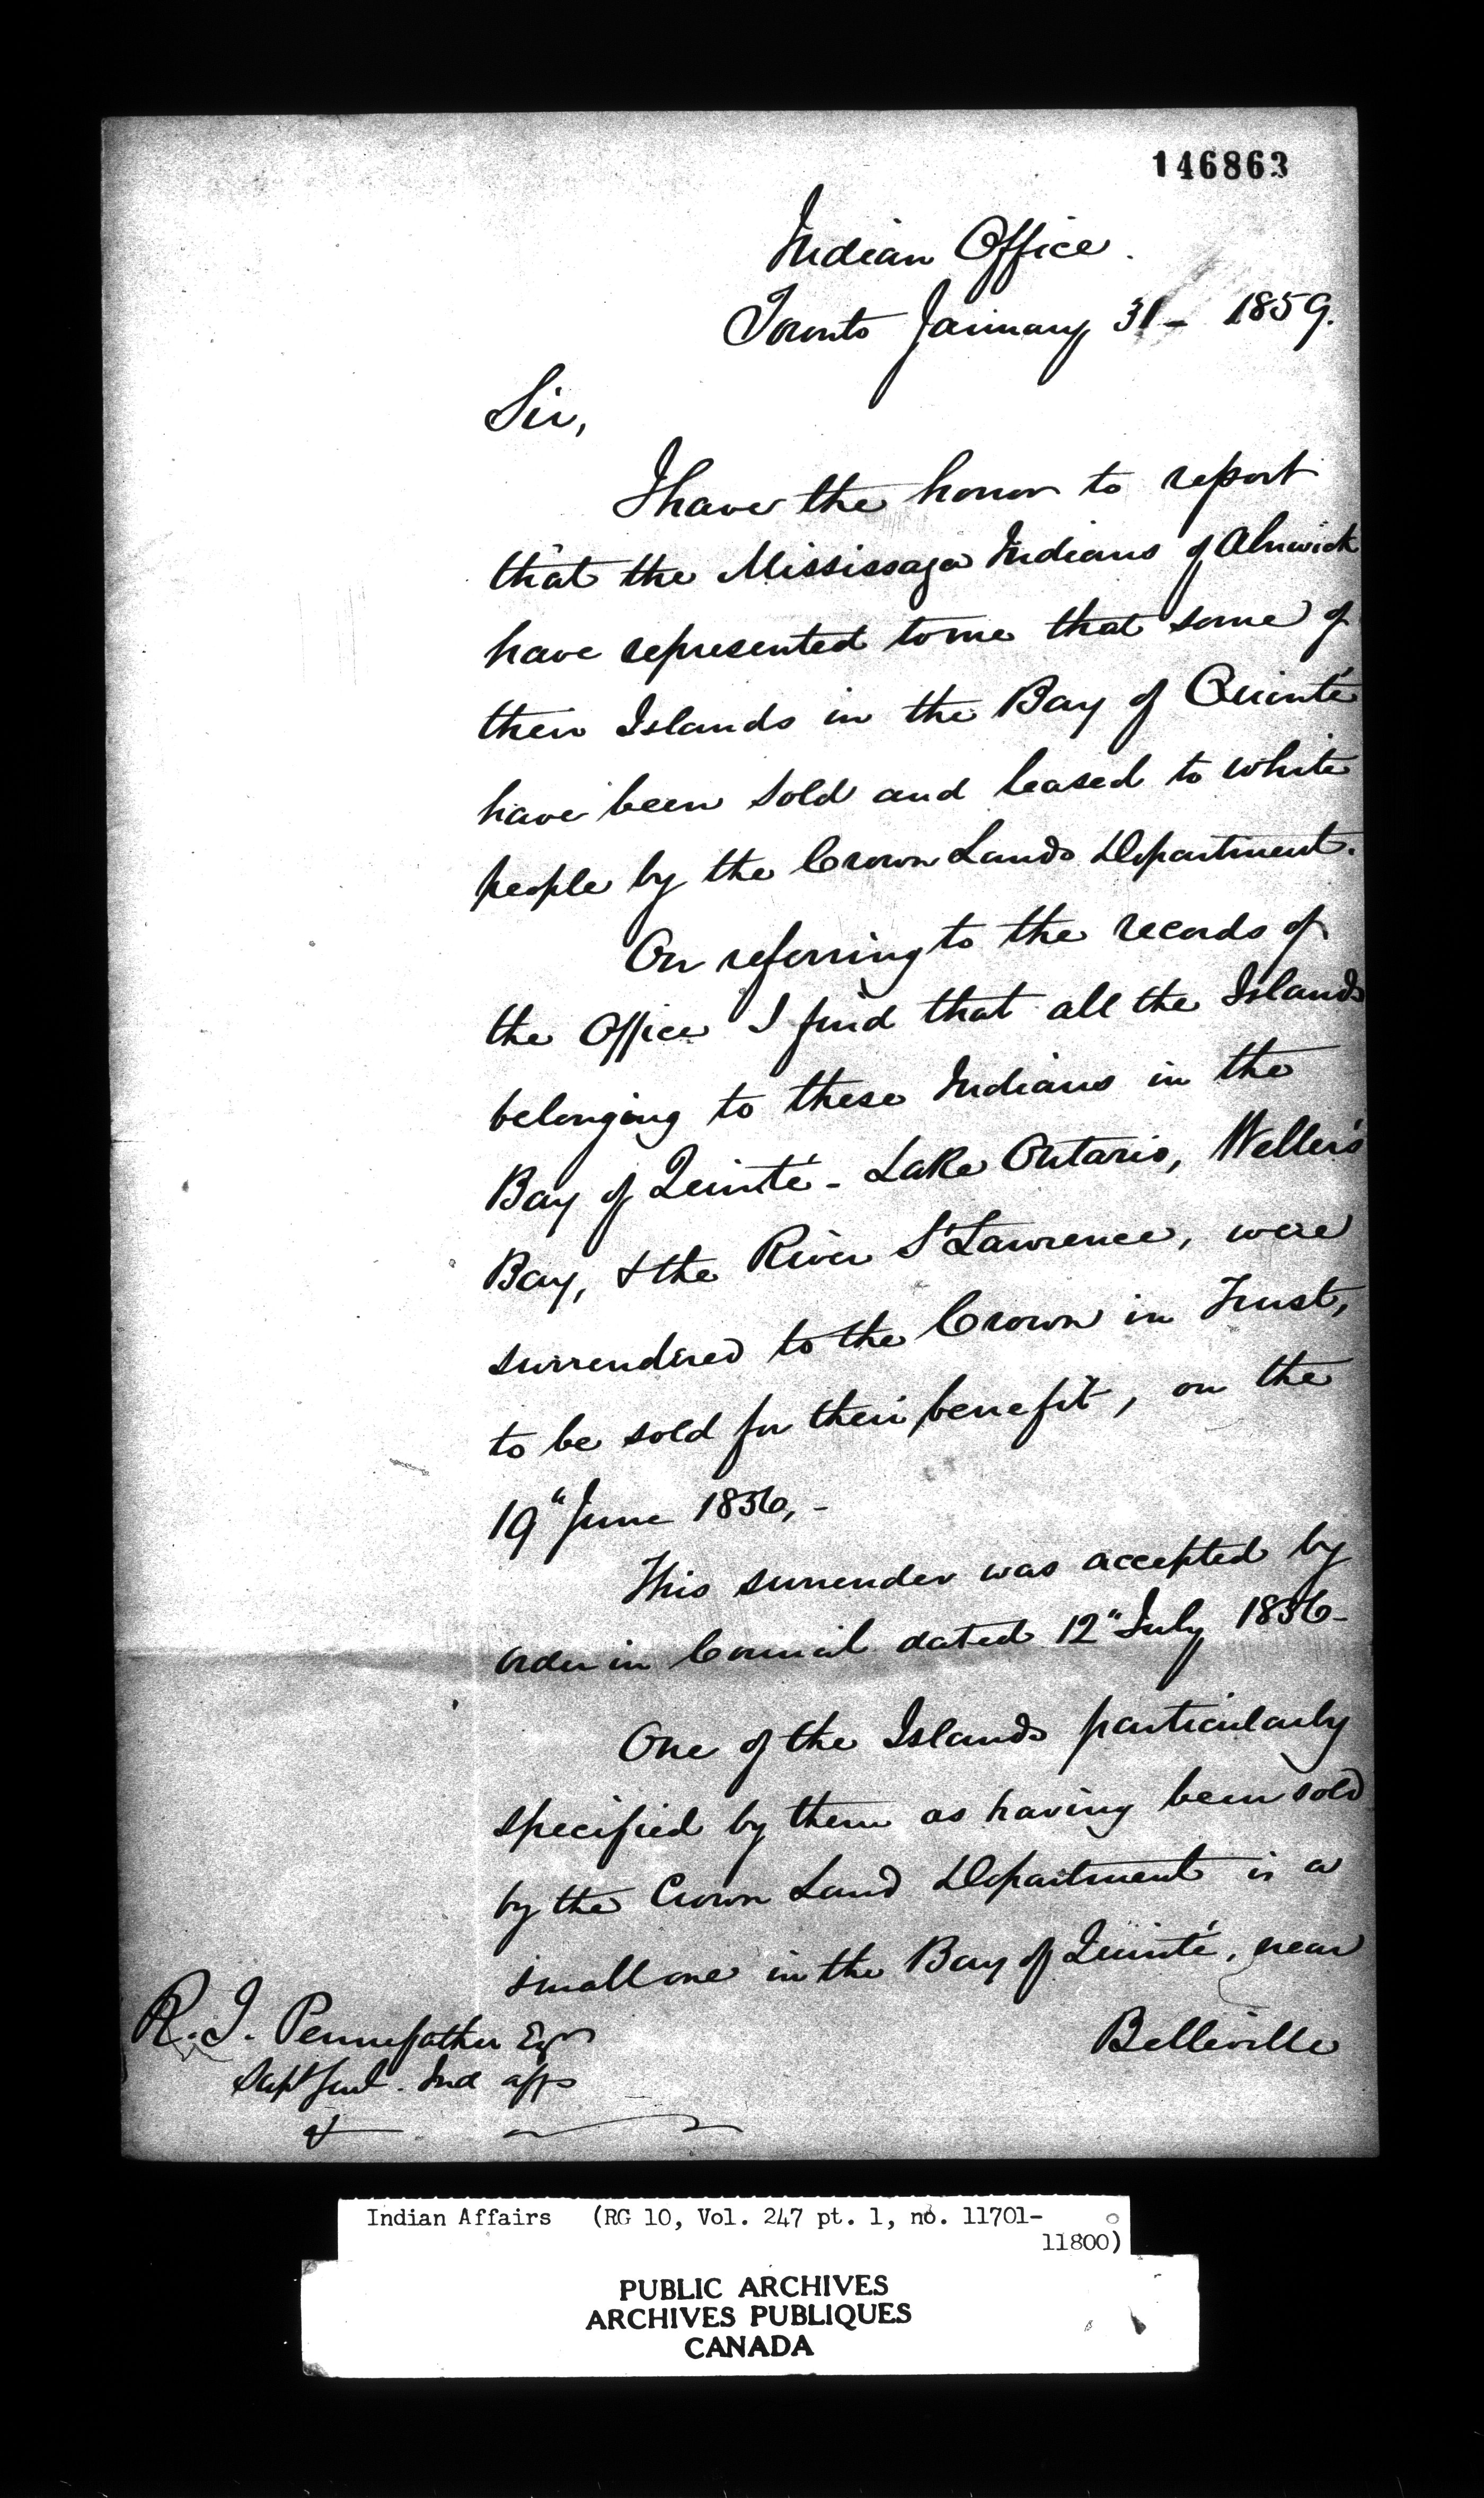 146863
Indian Office.
Toronto January 31 - 1859.
Sir,
I have the honor to report
that the Mississaga Indians of Alnwick
have represented to me that some of
their Islands in the Bay of Quinté
have been sold and leased to white
people by the Crown Lands Department.
On referring to the records of
the Office I find that all the Islands
belonging to these Indians in the
Bay of Quinté - Lake Ontario, Weller's
Bay, & the River St Lawrence, were
surrendered to the Crown in Trust,
to be sold for their benefit, on the
19" June 1856, -
This surrender was accepted by
order in Council dated 12" July 1856 -
One of the Islands particularly
specified by them as having been sold
by the Crown Land Department is a
small one in the Bay of Quinté, near
Belleville
R. J. Pennefather Esqr
Supt Genl. Ind affs
Indian Affairs (RG 10, Vol. 247 pt. 1, no. 11701-
11800)
PUBLIC ARCHIVES
ARCHIVES PUBLIQUES
CANADA